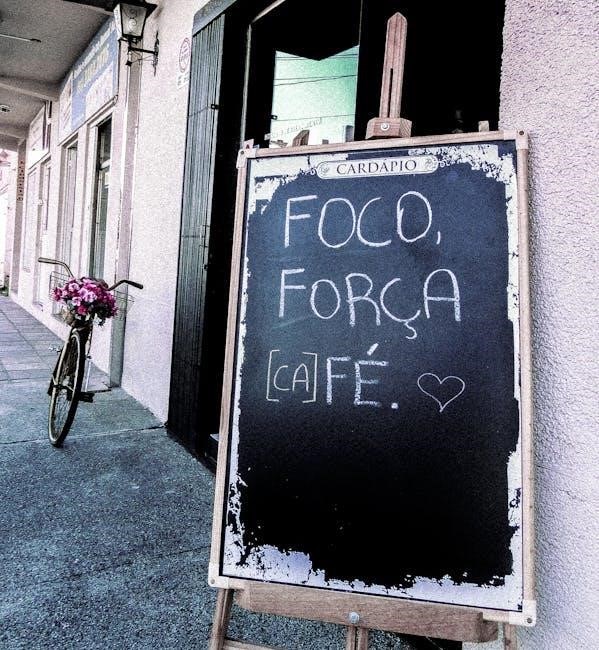 CARDÁPIO
FOCO,
FORÇA
[CA]FÉ. ♡